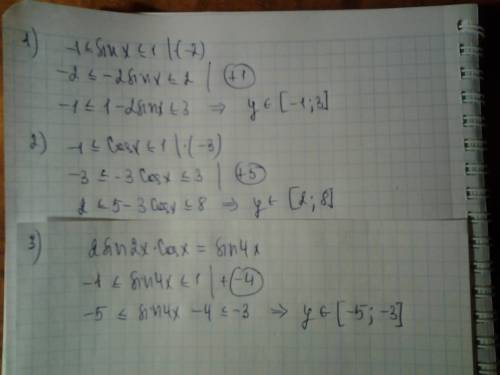 1) -1 ≤ sin x ≤ 1 | (-2)
-2 ≤ -2sin x ≤ 2 | +1
-1 ≤ 1 - 2sin x ≤ 3 ⇒ y ∈ [-1; 3]
2) -1 ≤ cos x ≤ 1 | · (-3)
-3 ≤ -3cos x ≤ 3 | +5
2 ≤ 5 - 3cos x ≤ 8 ⇒ y ∈ [2; 8]
3) 2sin2x · cos x = sin4x
-1 ≤ sin4x ≤ 1 | + (-4)
-5 ≤ sin4x - 4 ≤ -3 ⇒ y ∈ [-5; -3]